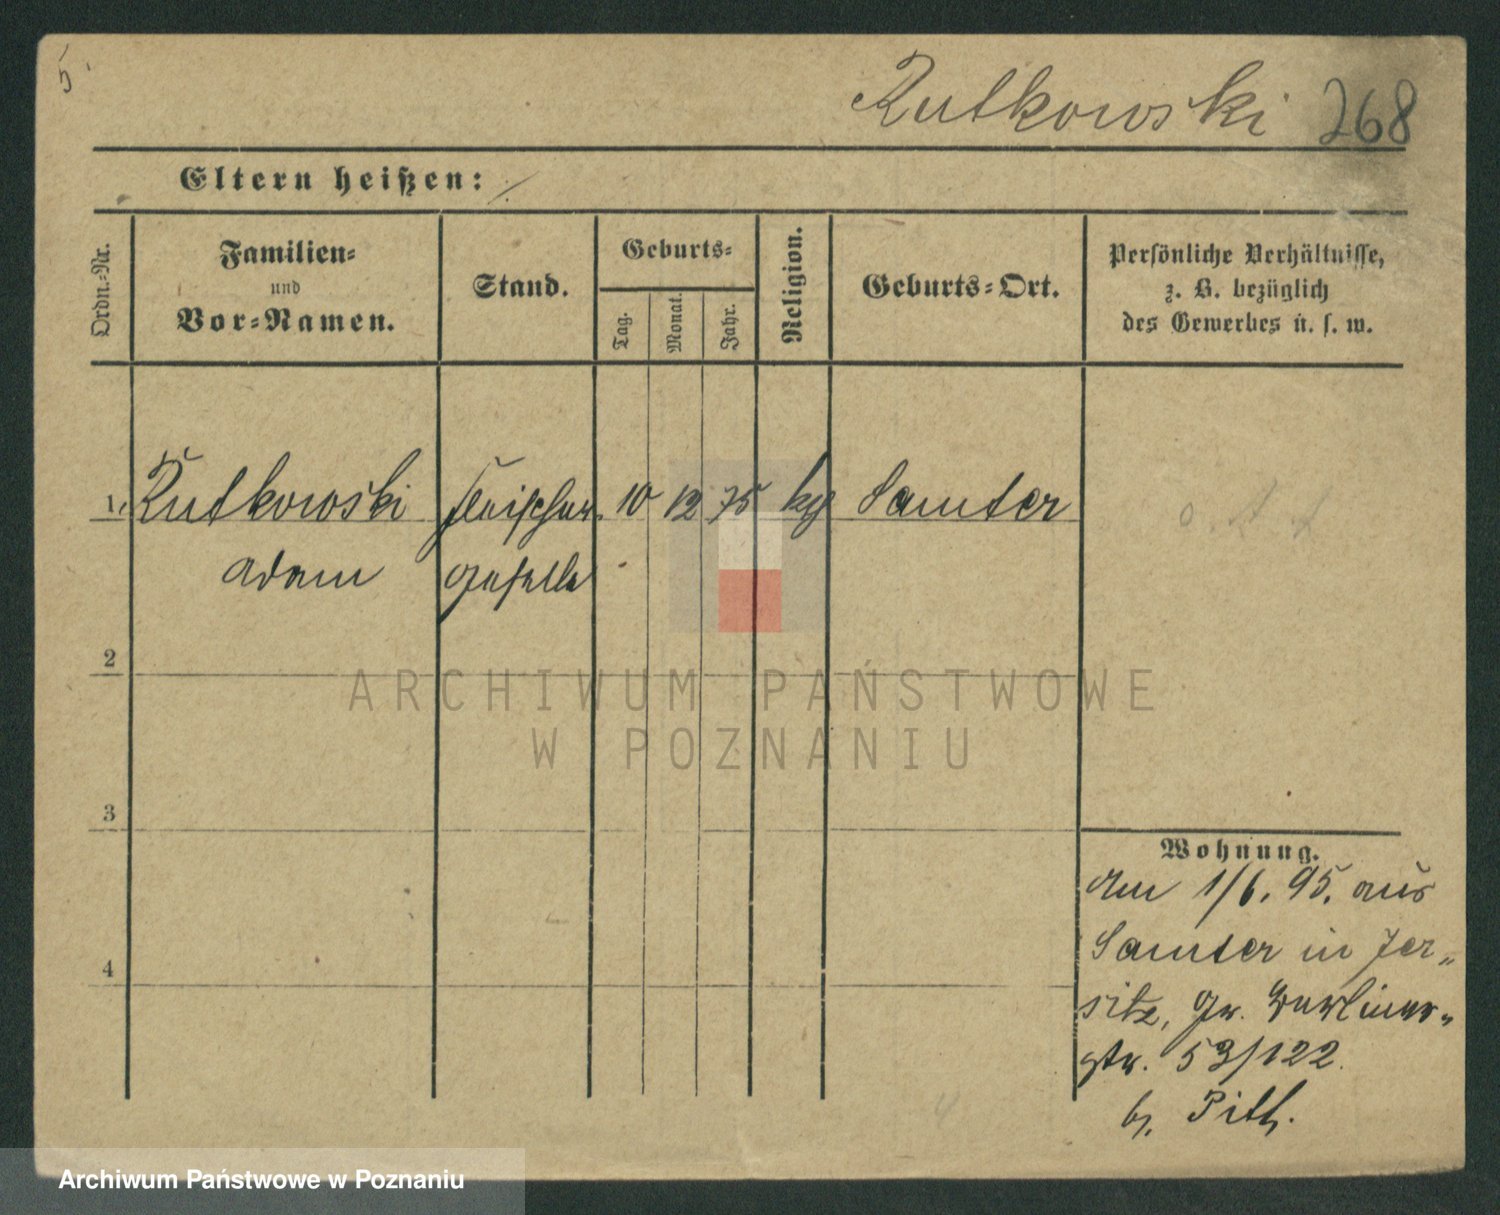 5.
Rutkowski 268
Eltern heißen:
Ordn.-Nr.
Familien-
und
Vor-Namen.
Stand.
Geburts-
Tag.
Monat.
Jahr.
Religion.
Geburts-Ort.
Persönliche Verhältnisse,
z. B. bezüglich
des Gewerbes u. s. w.
1. Rutkowski Fleischer- 10 12 75 Samter
Adam geselle
2
3
4
Wohnung.
Am 1/6. 95. aus
Samter in Jer-
sitz, Gr. Berliner-
str. 53/122.
b.
ARCHIWUM PAŃSTWOWE
W POZNANIU
Archiwum Państwowe w Poznaniu